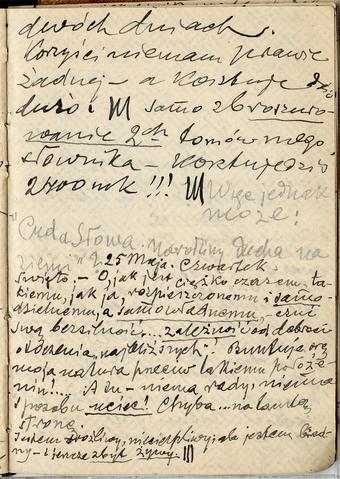 dwóch dniach.
Korzyści niemam prawie
żadnej – a kosztuje dziś
dużo! samo zbroszuro-
wanie 2ch tomów mego
słownika – kosztuje dziś
2800 mk!!!
Więc jednak
może!
"Cud a Słowa. Narodziny Ducha na
ziemi" 25 Maja. Czwartek.
Święto. – O, jak jest ciężko czasem ta-
kiemu, jak ja, rozpieszczonemu i samo-
dzielnemu, a samowładnemu, – czuć
swą bezsilność... zależność od dobroci
otoczenia "najbliższych". Buntuje się
moja natura przeciw takiemu położe-
niu!... A tu – niema rady, niema
sposobu uciec! Chyba... na tamtą
stronę.
Jestem złośliwy, niecierpliwy; ale jestem bied-
ny – i jeszcze zbyt żywy.